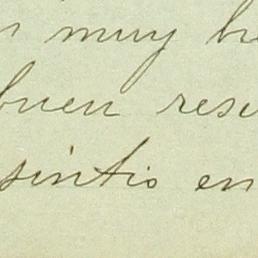 muy
buen resu
sintio en